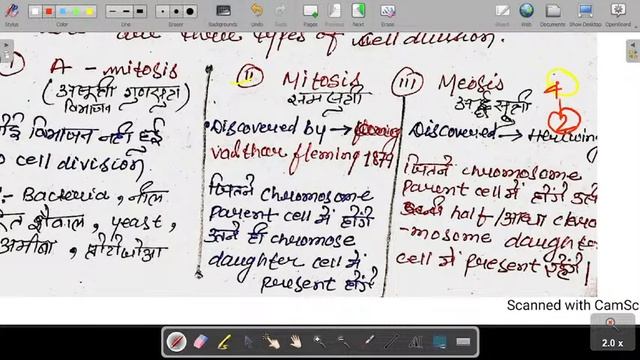 Styles
Backgrounds
Undo
Redo
Pages
Previous
Next
Board
Web
Documents
Show Desktop
OpenBoard
are three types of cell division.
A - mitosis
(असूत्री
विभाजन
कोई विभाजन नही हुई
o cell division.
:- Bacteria, नील
शैवाल, yeast,
अमीबा,
(ii) Mitosis
समसूत्री
• Discovered by → fleming
valthar fleming 1879
जितने chromosome
parent cell में होंगे
उतने ही chromose
daughter cell में
present होंगे
(iii) Meosis
अर्द्धसूत्री
4
2
Discovered → Hertwing
जितने chromosome
parent cell में होंगे
half/आधा chro
-mosome daughter
cell में present रहेंगे |
Scanned with CamSc
2.0 x